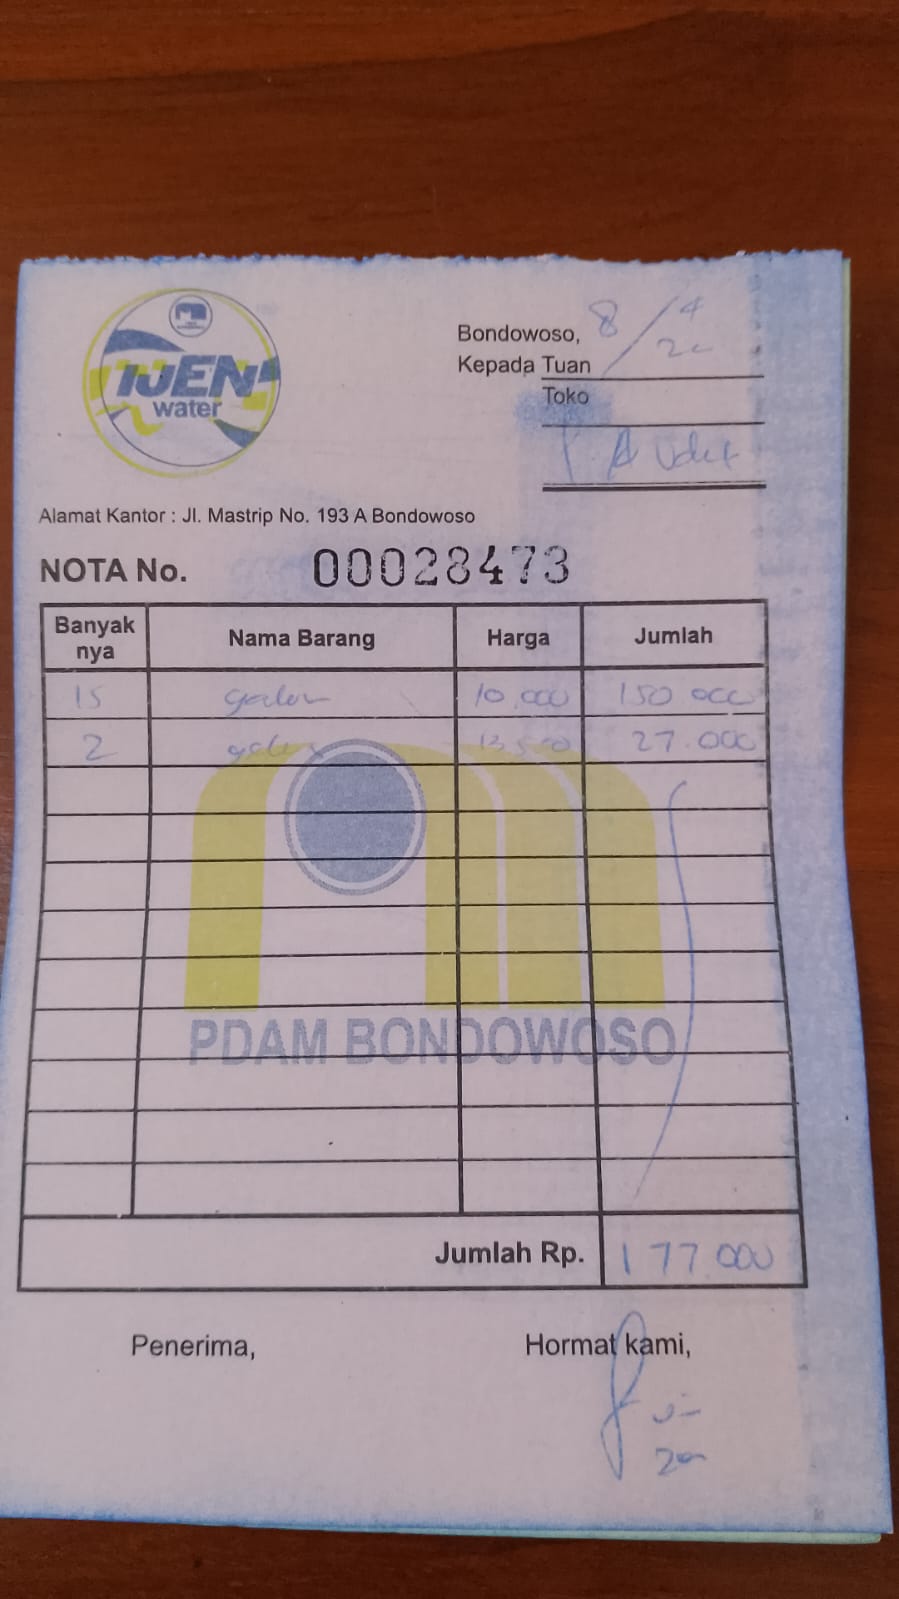 IJEN
water
Bondowoso, 8/4
Kepada Tuan
Toko
Alamat Kantor : Jl. Mastrip No. 193 A Bondowoso
NOTA No. 00028473
Banyak nya Nama Barang Harga Jumlah
15 galon 10.000 150 000
2 galon 13.500 27.000
PDAM BONDOWOSO
Jumlah Rp. 177.000
Penerima, Hormat kami,